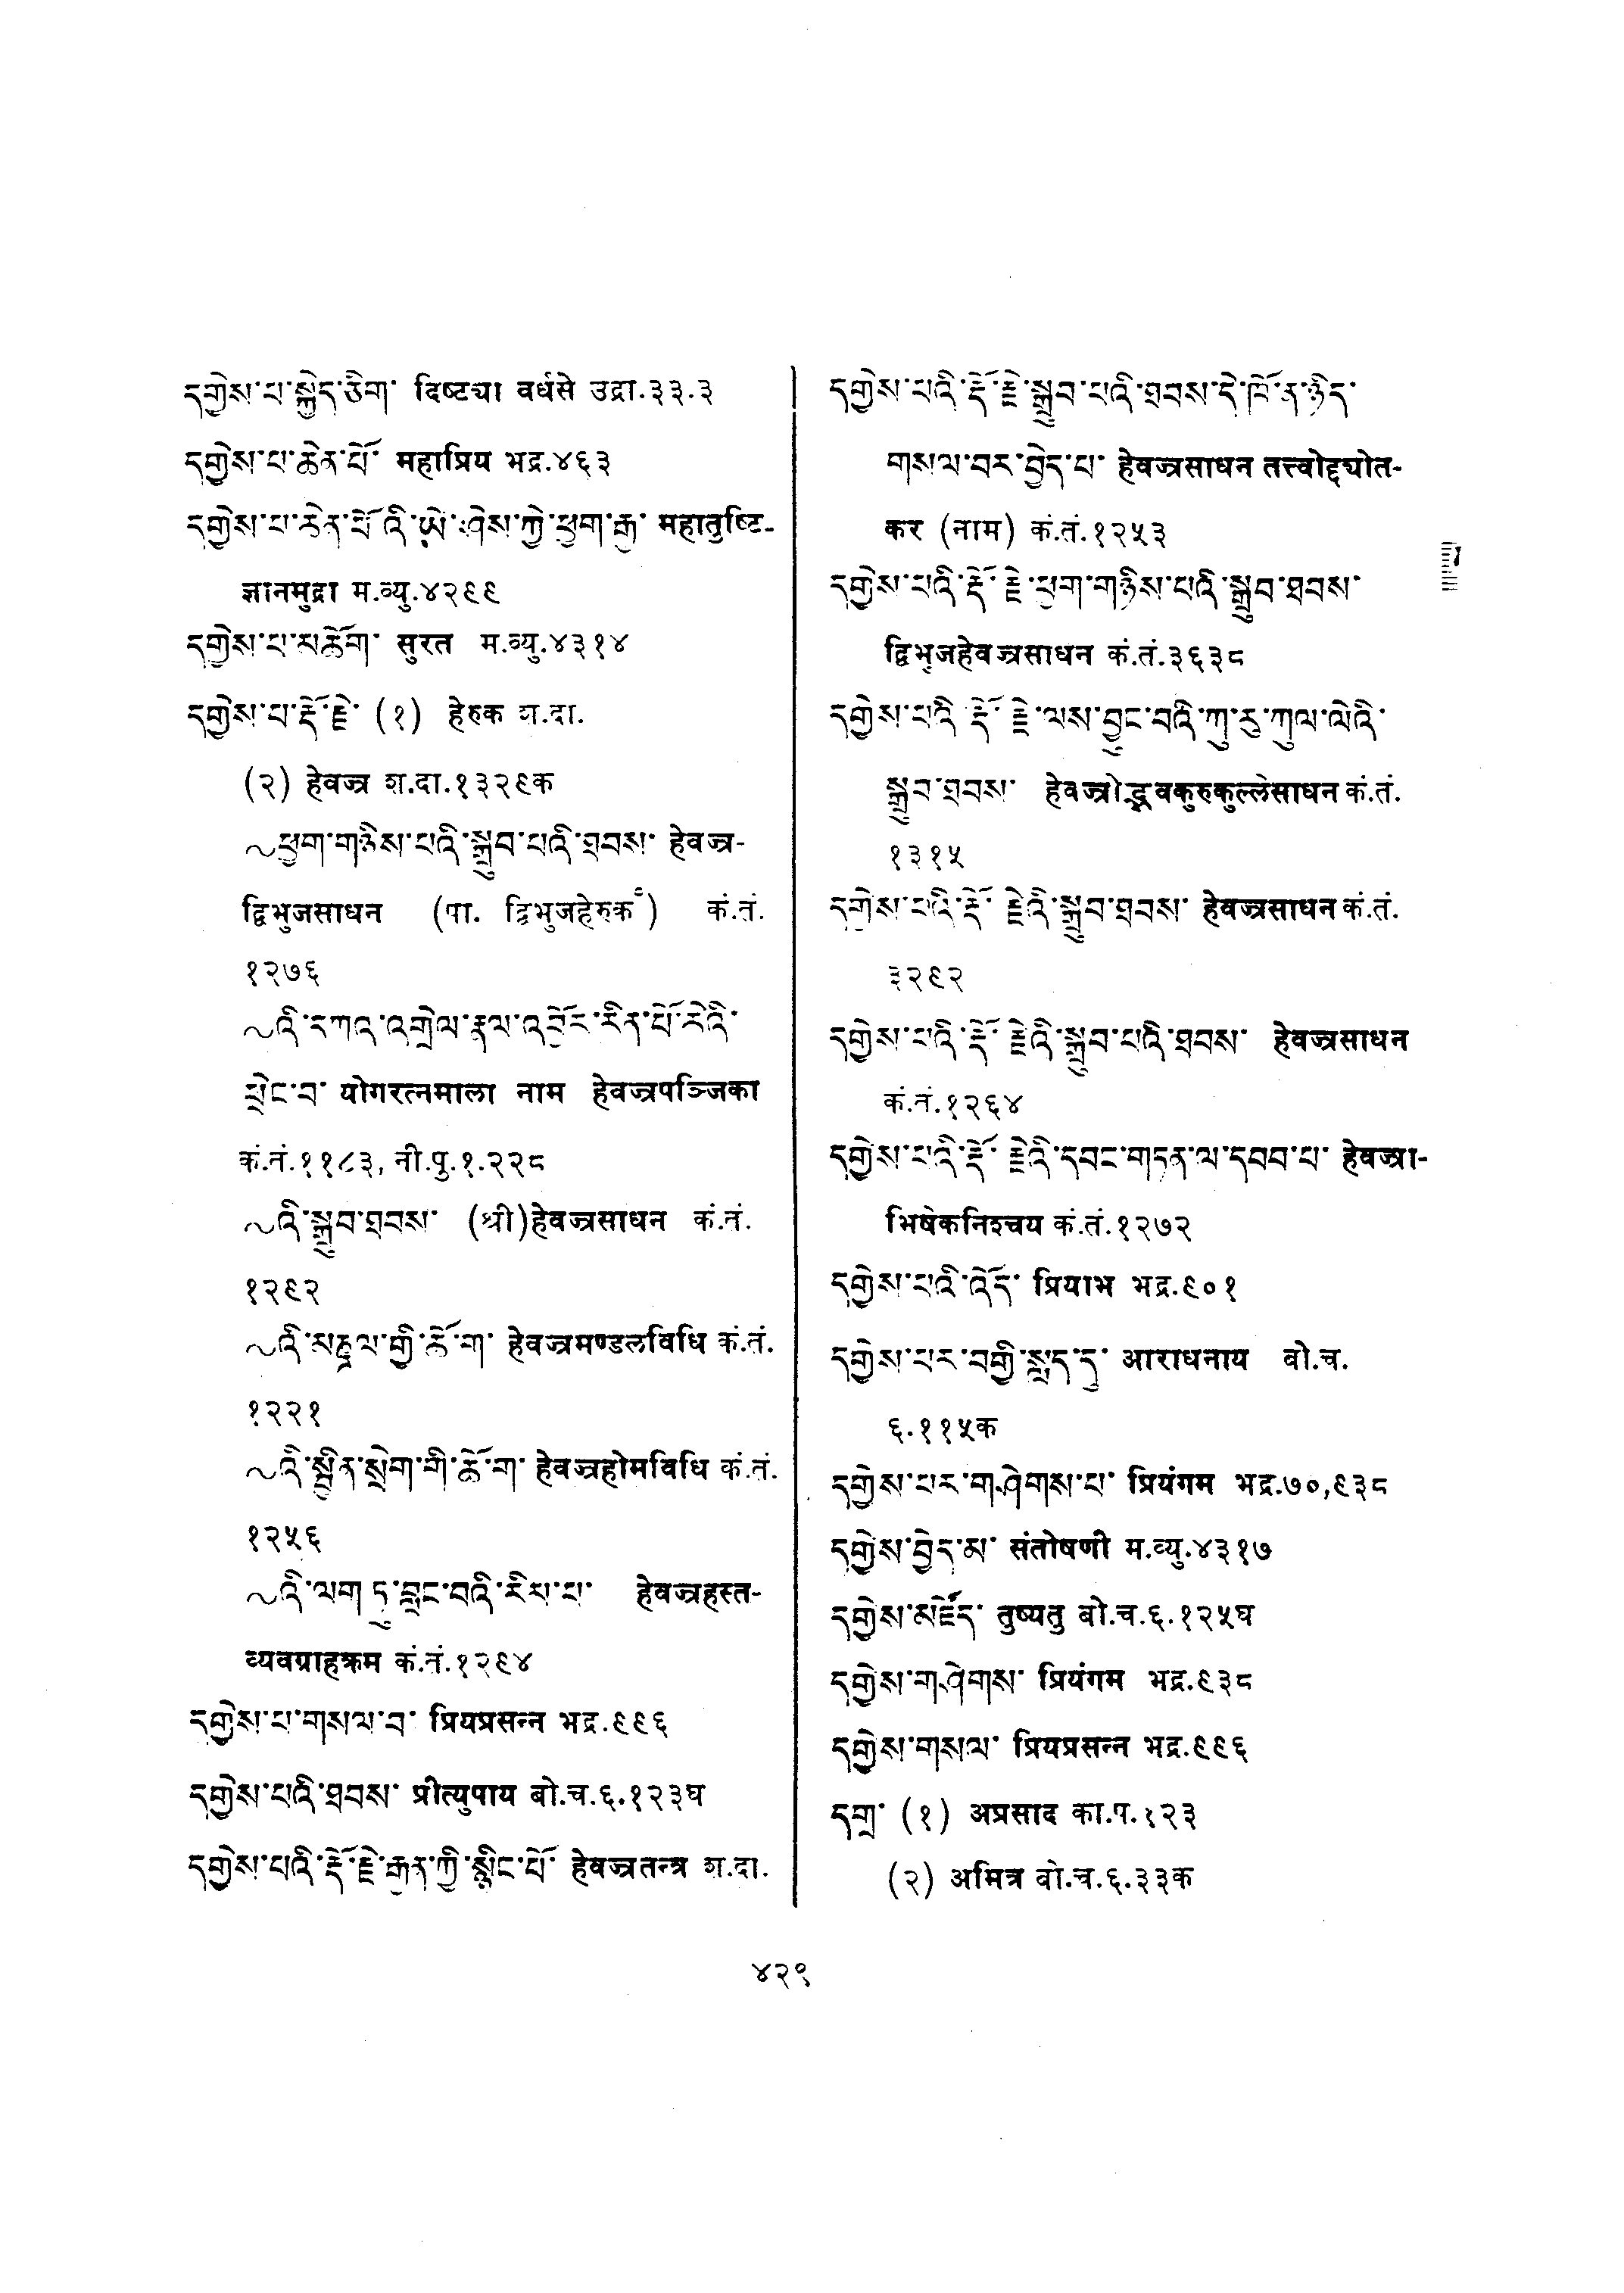 དགྱེས་པ་སྐྱེད་ཅིག་ दिष्ट्या वर्धसे उद्रा.३३.३
དགྱེས་པ་ཆེན་པོ་ महाप्रिय भद्र.४६३
དགྱེས་པ་ཆེན་པོའི་ཡེ་ཤེས་ཀྱི་ཕྱག་རྒྱ་ महातुष्टि-
ज्ञानमुद्रा म.व्यु.४२९९
དགྱེས་པ་མཆོག་ सुरत म.व्यु.४३१४
དགྱེས་པ་རྡོ་རྗེ་ (१) हेरुक श.दा.
(२) हेवज्र श.दा.१३२९क
~ཕྱག་གཉིས་པའི་སྒྲུབ་པའི་ཐབས་ हेवज्र-
द्विभुजसाधन (पा. द्विभुजहेरुक॰) कं.तं.
१२७६
~འི་དཀའ་འགྲེལ་རྣལ་འབྱོར་རིན་པོ་ཆེའི་
ཕྲེང་བ་ योगरत्नमाला नाम हेवज्रपञ्जिका
कं.तं.११८३, नी.पु.१.२२८
~འི་སྒྲུབ་ཐབས་ (श्री)हेवज्रसाधन कं.तं.
१२९२
~འི་མཎྜལ་གྱི་ཆོ་ག་ हेवज्रमण्डलविधि कं.तं.
१२२१
~འི་སྦྱིན་སྲེག་གི་ཆོ་ག་ हेवज्रहोमविधि कं.तं.
१२५६
~འི་ལག་ཏུ་བླང་བའི་རིམ་པ་ हेवज्रहस्त-
व्यवग्राहक्रम कं.तं.१२९४
དགྱེས་པ་གསལ་བ་ प्रियप्रसन्न भद्र.९९६
དགྱེས་པའི་ཐབས་ प्रीत्युपाय बो.च.६.१२३घ
དགྱེས་པའི་རྡོ་རྗེ་རྒྱུན་ཀྱི་སྙིང་པོ་ हेवज्रतन्त्र श.दा.
དགྱེས་པའི་རྡོ་རྗེ་སྒྲུབ་པའི་ཐབས་དེ་ཁོ་ན་ཉིད་
གསལ་བར་བྱེད་པ་ हेवज्रसाधन तत्त्वोद्द्योत-
कर (नाम) कं.तं.१२५३
དགྱེས་པའི་རྡོ་རྗེ་ཕྱག་གཉིས་པའི་སྒྲུབ་ཐབས་
द्विभुजहेवज्रसाधन कं.तं.३६३८
དགྱེས་པའི་རྡོ་རྗེ་ལས་བྱུང་བའི་ཀུ་རུ་ཀུལ་ལེའི་
སྒྲུབ་ཐབས་ हेवज्रोद्भवकुरुकुल्लेसाधन कं.तं.
१३१५
དགྱེས་པའི་རྡོ་རྗེའི་སྒྲུབ་ཐབས་ हेवज्रसाधन कं.तं.
३२९२
དགྱེས་པའི་རྡོ་རྗེའི་སྒྲུབ་པའི་ཐབས་ हेवज्रसाधन
कं.तं.१२६४
དགྱེས་པའི་རྡོ་རྗེའི་དབང་གཏན་ལ་དབབ་པ་ हेवज्रा-
भिषेकनिश्चय कं.तं.१२७२
དགྱེས་པའི་འོད་ प्रियाभ भद्र.९०१
དགྱེས་པར་བགྱི་སླད་དུ་ आराधनाय बो.च.
६.११५क
དགྱེས་པར་གཤེགས་པ་ प्रियंगम भद्र.७०,९३८
དགྱེས་བྱེད་མ་ संतोषणी म.व्यु.४३१७
དགྱེས་མཛོད་ तुष्यतु बो.च.६.१२५घ
དགྱེས་གཤེགས་ प्रियंगम भद्र.९३८
དགྱེས་གསལ་ प्रियप्रसन्न भद्र.९९६
དགྲ་ (१) अप्रसाद का.प.१२३
(२) अमित्र बो.च.६.३३क
४२९